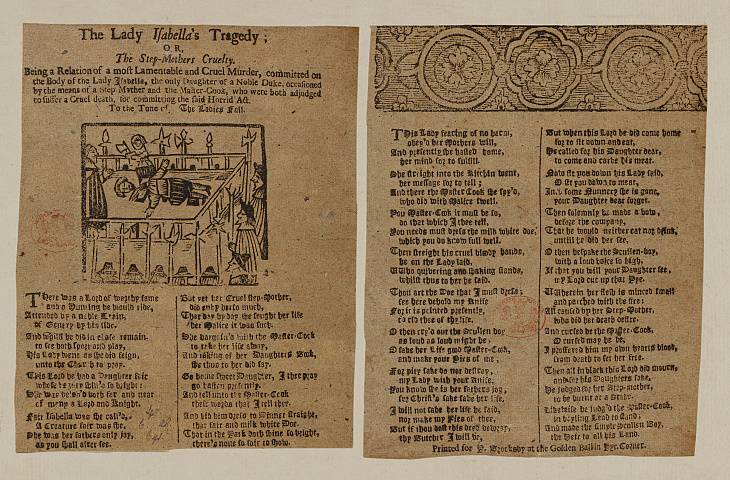 The Lady Isabella's Tragedy;
OR,
The Step-Mothers Cruelty.
Being a Relation of a most Lamentable and Cruel Murder, committed on
the Body of the Lady Isabella, the only Daughter of a Noble Duke, occasioned
by the means of a Step Mother and the Master-Cook, who were both adjudged
to suffer a Cruel death, for committing the said Horrid Act.
To the Tune of, The Ladies Fall.
There was a Lord of worthy fame
and a Hunting he would ride,
Attended by a noble Train,
of Gentry by his side.
And whilst he did in chase remain,
to see both sport and play,
His Lady went as she did feign,
unto the Church to pray.
This Lord he had a Daughter fair
whose beauty shin'd so bright:
She was belov'd both far and near
of many a Lord and Knight.
Fair Isabella was she call'd,
A Creature fair was she,
She was her fathers only joy,
as you shall after see.
But yet her Cruel Step-Mother,
did envy her so much,
That day by day she sought her life
her Malice it was such.
She bargain'd with the Master-Cook
to take her life away,
And taking of her Daughters Book,
she thus to her did say.
Go home sweet Daughter, I thee pray
go hasten presently,
And tell unto the Master-Cook
these words that I tell thee.
And bid him dress to Dinner straight,
that fair and milk white Doe,
That in the Park doth shine so bright,
there's none so fair to show.
THis Lady fearing of no harm,
obey'd her Mothers will,
And presently she hasted home,
her mind for to fulfill.
She straight into the Kitchin went,
her message for to tell;
And there the Master Cook she spy'd,
who did with Malice swell.
You Master-Cook it must be so,
do that which I thee tell,
You needs must dress the milk white doe,
which you do know full well.
Then streight his cruel bloody hands,
he on the Lady laid,
Who quivering and shaking stands,
whilst thus to her he said.
Thou art the Doe that I must dress;
see here behold my Knife
For it is pointed presently,
to rid thee of thy life.
O then cry'd out the Scullion boy
as loud as loud might be;
O save her Life good Master-Cook,
and make your Pies of me,
For pity sake do not destroy,
my Lady with your Knife,
You know she is her fathers joy,
for Christ's sake save her life,
I will not save her life he said,
nor make my Pies of thee,
But if thou dost this deed bewray,
thy Butcher I will be,
But when this Lord he did come home
for to sit down and eat,
He called for his Daughter dear,
to come and carve his meat.
Now sit you down his Lady said,
O sit you down to meat,
Into some Nunnery she is gone,
your Daughter dear forget.
Then solemnly he made a vow,
before the company,
That he would neither eat nor drink,
untill he did her see.
O then bespake the Scullen-boy,
with a loud voice so high,
If that you will your Daughter see,
my Lord cut up that Pye.
Wherein her flesh is minced small
and parched with the fire:
All caused by her Step-Mother,
who did her death desire.
And cursed be the Master-Cook,
O cursed may he be,
I proffered him my own hearts blood,
from death to set her free.
Then all in black this Lord did mourn,
and for his Daughters sake,
He judged for her Step-mother,
to be burnt at a Stake.
Likewise he judg'd the Master-Cook,
in boyling Lead to stand;
And made the simple Scullion Boy,
the Heir to all his Land.
Printed for P. Brooksby at the Golden Ball in Pye Corner.